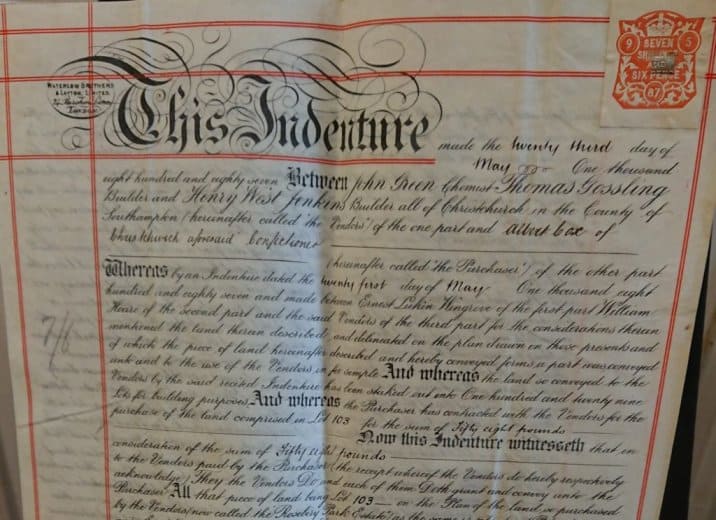 WATERLOW BROTHERS
& LAYTON, LIMITED,
LONDON
9 5
SEVEN
SHILLINGS
AND
SIX PENCE
87
This Indenture made the twenty third day of
May One thousand
eight hundred and eighty seven Between John Green Chemist Thomas Gossling
Builder and Henry West Jenkins Builder all of Christchurch in the County of
Southampton (hereinafter called the Vendors) of the one part and Albert Cox of
Christchurch aforesaid Confectioner
(hereinafter called the Purchaser) of the other part
Whereas by an Indenture dated the twenty first day of May One thousand eight
hundred and eighty seven and made between Ernest Lukin Wingrove of the first part William
Hoare of the second part and the said Vendors of the third part for the considerations therein
mentioned the land therein described and delineated on the plan drawn on these presents and
of which the piece of land hereinafter described and hereby conveyed forms a part was conveyed
unto and to the use of the Vendors in fee simple And whereas the land so conveyed to the
Vendors by the said recited Indenture has been staked out into One hundred and twenty nine
Lots for building purposes And whereas the Purchaser has contracted with the Vendors for the
purchase of the land comprised in Lot 103 for the sum of Fifty eight pounds
Now this Indenture witnesseth that in
consideration of the sum of Fifty eight pounds
to the Vendors paid by the Purchaser (the receipt whereof the Vendors do hereby respectively
acknowledge) They the Vendors Do and each of them Doth grant and convey unto the
Purchaser All that piece of land being Lot 103 on the Plan of the land so purchased
by the Vendors (now called the "Rosebery Park Estate") as the same is
7/6